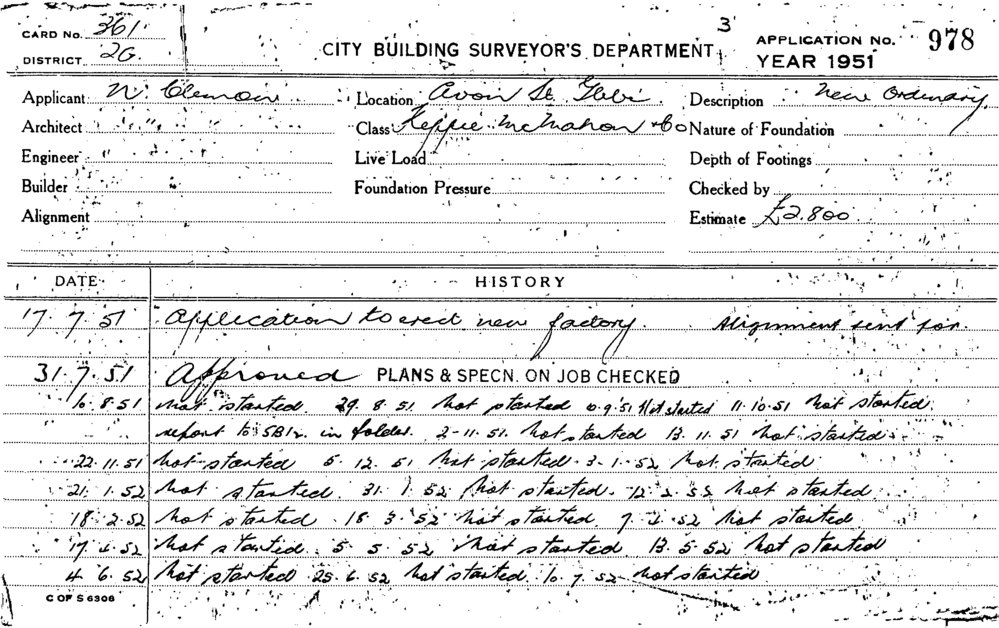 3
CARD No. 361
DISTRICT 2G.
CITY BUILDING SURVEYOR'S DEPARTMENT
APPLICATION No. 978
YEAR 1951
Applicant N. Location Avon St. Glebe. Description New Ordinary.
Architect " Class Keppie McMahon & Co Nature of Foundation
Engineer " Live Load Depth of Footings
Builder " Foundation Pressure Checked by
Alignment Estimate £2.800
DATE HISTORY
17. 7. 51 Application to erect new factory. Alignment sent for.
31. 7. 51 Approved PLANS & SPECN. ON JOB CHECKED
16. 8. 51 not started. 29. 8. 51. Not started 10.9.51 Not started 11.10.51 Not started.
report to SBI in folder. 2-11.51. Not started 13. 11. 51 Not started
22. 11. 51 not started 5. 12. 51 Not started. 3-1-52 Not started
21. 1. 52 Not started. 31. 1. 52 Not started. 12. 2. 52 Not started
18. 2. 52 Not started. 18 3. 52 Not started. 7. 4. 52 Not started
17. 4. 52 not started. 5. 5. 52 Not started 13. 5. 52 Not started
4. 6. 52 not started 25. 6. 52 Not started. 10. 7. 52 Not started
C OF S 6306